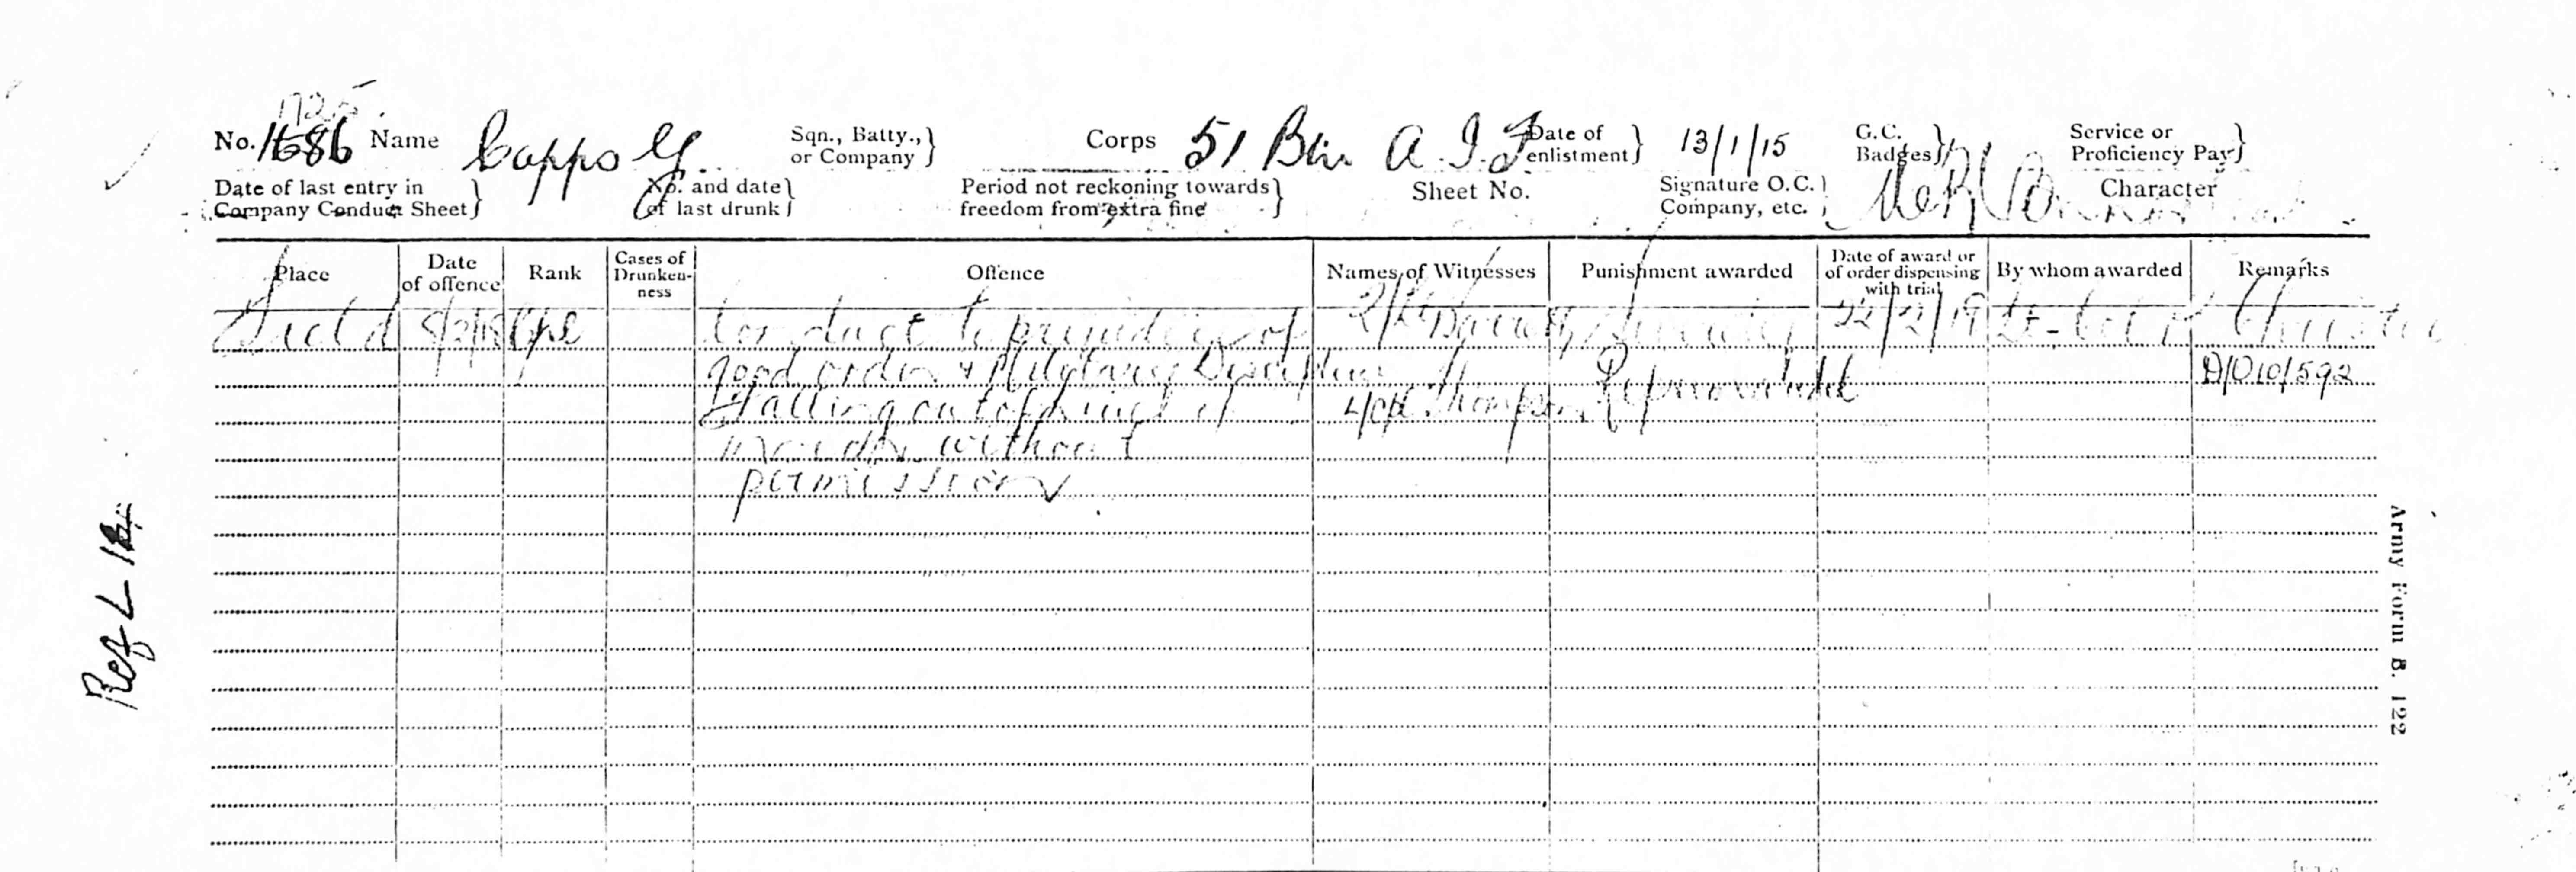 1725
No. 1686 Name Capps G. Sqn., Batty., or Company } Corps 51 Bn A.I.F Date of enlistment } 13/1/15 G.C. Badges } Service or Proficiency Pay }
Date of last entry in Company Conduct Sheet } No. and date of last drunk } Period not reckoning towards freedom from extra fine } Sheet No. Signature O.C. Company, etc. } Character
Place Date of offence Rank Cases of Drunkenness Offence Names of Witnesses Punishment awarded Date of award or of order dispensing with trial By whom awarded Remarks
Field Cpl Conduct to prejudice of 2/Lt 22/2/19 Lt. Col
good order & Military Discipline Reprimanded D/010/592
Falling out of line of L/Cpl Thompson
march without
permission
Army Form B. 122
Ref L